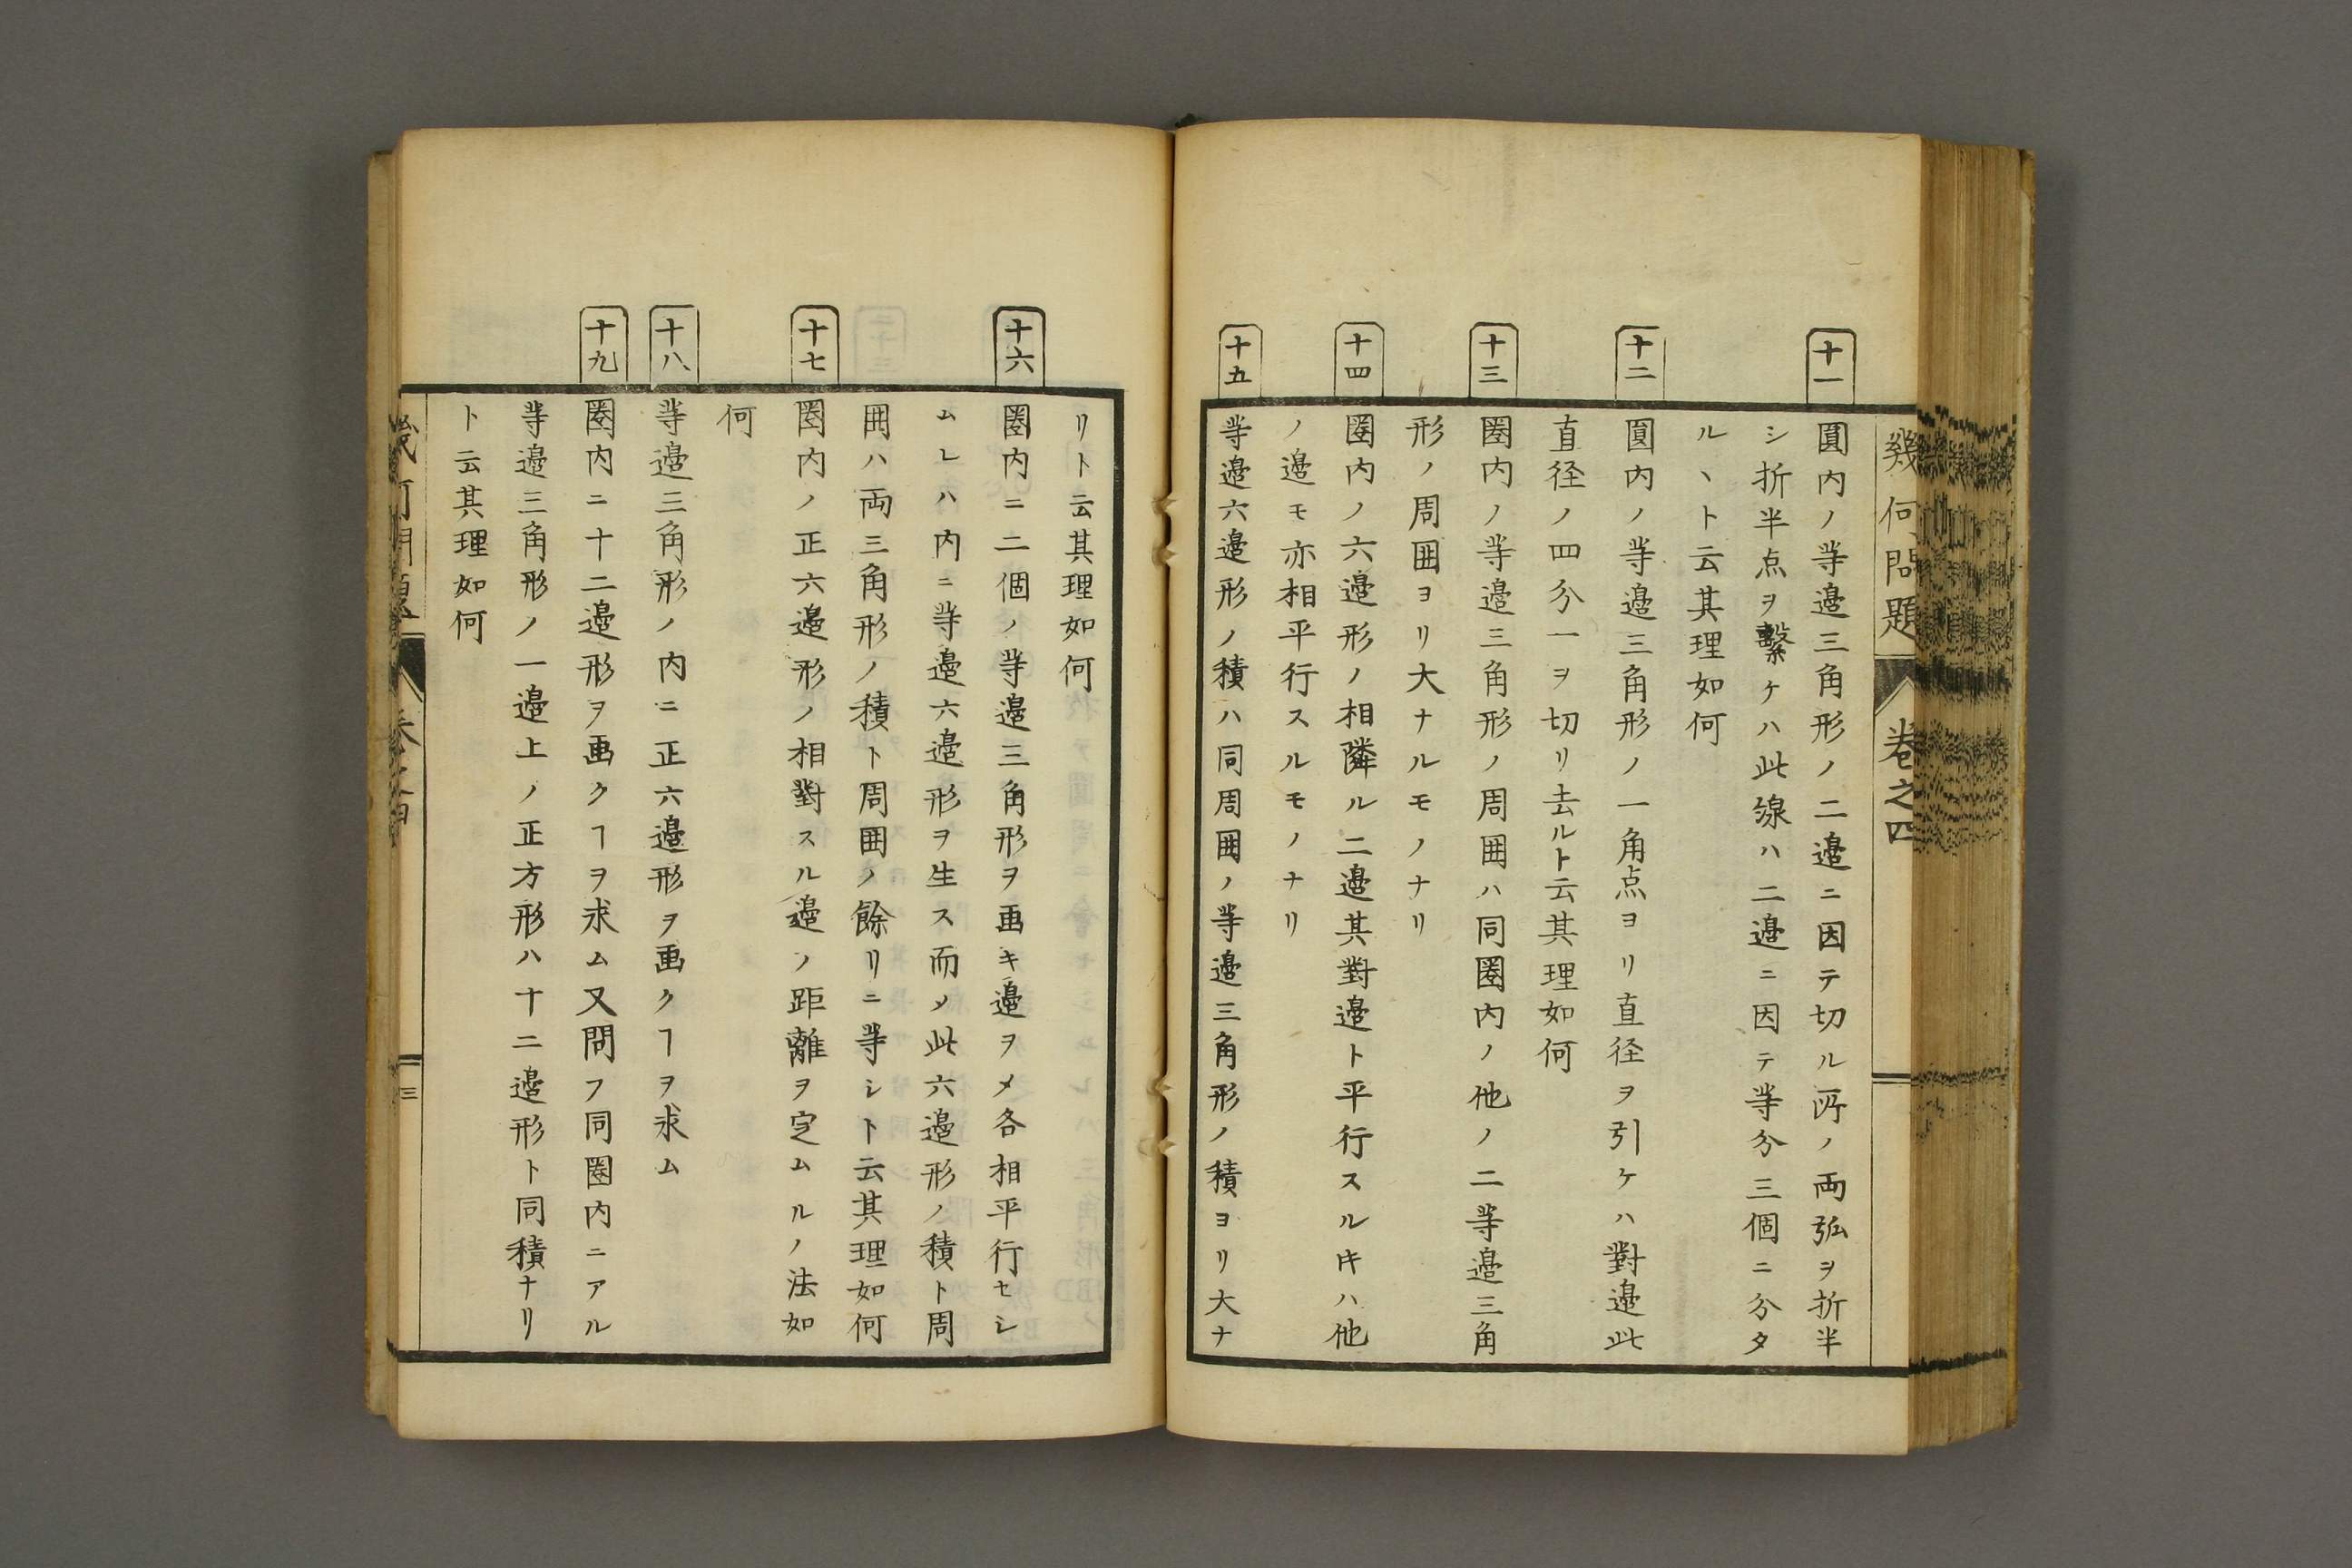 幾何問題 卷之四
十一
圓内ノ等邉三角形ノ二邉ニ因テ切ル所ノ両弧ヲ折半
シ折半点ヲ繫ケハ此線ハ二邉ニ因テ等分三個ニ分タ
ルヽト云其理如何
十二
圓内ノ等邉三角形ノ一角点ヨリ直径ヲ引ケハ對邉此
直径ノ四分一ヲ切リ去ルト云其理如何
十三
圏内ノ等邉三角形ノ周囲ハ同圏内ノ他ノ二等邉三角
形ノ周囲ヨリ大ナルモノナリ
十四
圏内ノ六邉形ノ相隣ル二邉其對邉ト平行スルキハ他
ノ邉モ亦相平行スルモノナリ
十五
等邉六邉形ノ積ハ同周囲ノ等邉三角形ノ積ヨリ大ナ
リト云其理如何
十六
圏内ニ二個ノ等邉三角形ヲ画キ邉ヲメ各相平行セシ
ムレハ内ニ等邉六邉形ヲ生ス而メ此六邉形ノ積ト周
囲ハ両三角形ノ積ト周囲ノ餘リニ等シト云其理如何
十七
圏内ノ正六邉形ノ相對スル邉ノ距離ヲ定ムルノ法如
何
十八
等邉三角形ノ内ニ正六邉形ヲ画クヿヲ求ム
十九
圏内ニ十二邉形ヲ画クヿヲ求ム又問フ同圏内ニアル
等邉三角形ノ一邉上ノ正方形ハ十二邉形ト同積ナリ
ト云其理如何
三